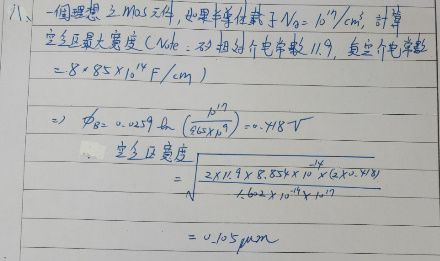 八、一個理想之MOS元件,如果半導体載子Na=10^17/cm³,計算
空乏区最大寬度(Note:矽相対介电常數11.9,真空介电常數
=8.85×10^14 F/cm)
=> φB= 0.0259 ln (10^17/9.65×10^9)=0.418 V
∴ 空乏区寬度
= √(2×11.9×8.854×10^-14×(2×0.418)/1.602×10^-19×10^17)
= 0.105 μm